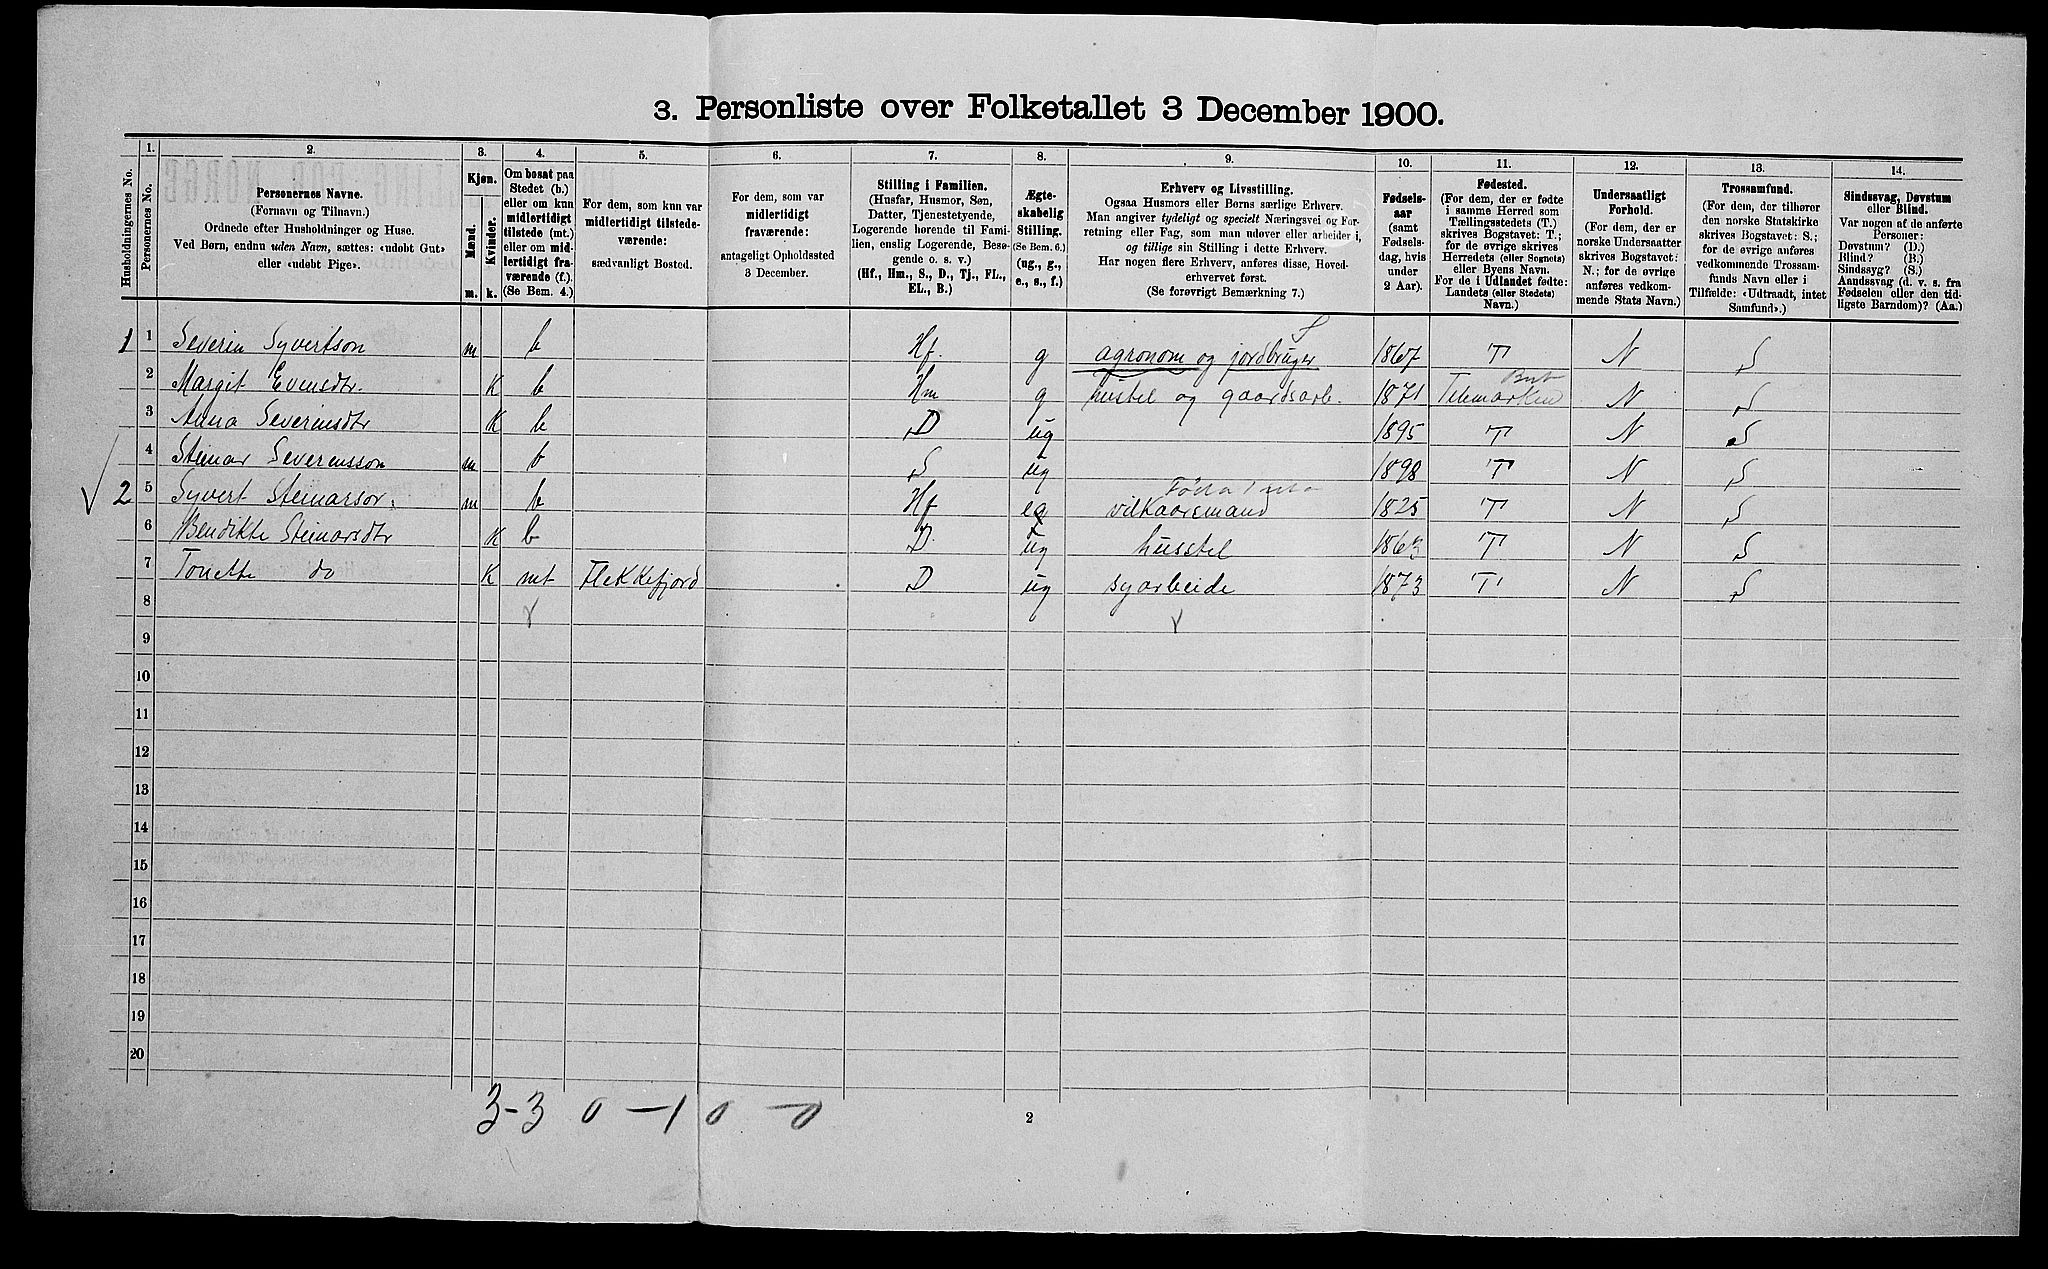 3. Personliste over Folketallet 3 December 1900.
1. 2. 3. 4. 5. 6. 7. 8. 9. 10. 11. 12. 13. 14.
Husholdningernes No.
Personernes No.
Personernes Navne.
(Fornavn og Tilnavn.)
Ordnede efter Husholdninger og Huse.
Ved Børn, endnu uden Navn, sættes: «udøbt Gut»
eller «udøbt Pige».
Kjøn.
Mænd.
m.
Kvinder.
k.
Om bosat paa
Stedet (b.)
eller om kun
midlertidigt
tilstede (mt.)
eller om mid-
lertidigt fra-
værende (f.).
(Se Bem. 4.)
For dem, som kun var
midlertidigt tilstede-
værende:
sædvanligt Bosted.
For dem, som var
midlertidigt
fraværende:
antageligt Opholdssted
3 December.
Stilling i Familien.
(Husfar, Husmor, Søn,
Datter, Tjenestetyende,
Logerende hørende til Fami-
lien, enslig Logerende, Besø-
gende o. s. v.)
(Hf., Hm., S., D., Tj., FL.,
EL., B.)
Ægte-
skabelig
Stilling.
(Se Bem. 6.)
(ug., g.,
e., s., f.)
Erhverv og Livsstilling.
Ogsaa Husmors eller Børns særlige Erhverv.
Man angiver tydeligt og specielt Næringsvei og For-
retning eller Fag, som man udøver eller arbeider i,
og tillige sin Stilling i dette Erhverv.
Har nogen flere Erhverv, anføres disse, Hoved-
erhvervet først.
(Se forøvrigt Bemærkning 7.)
Fødsels-
aar
(samt
Fødsels-
dag, hvis
under
2 Aar).
Fødested.
(For dem, der er fødte
i samme Herred som
Tællingsstedets (T.)
skrives Bogstavet: T.;
for de øvrige skrives
Herredets (eller Sognets)
eller Byens Navn.
For de i Udlandet fødte:
Landets (eller Stedets)
Navn.)
Undersaatligt
Forhold.
(For dem, der er
norske Undersaatter
skrives Bogstavet:
N.; for de øvrige
anføres vedkom-
mende Stats Navn.)
Trossamfund.
(For dem, der tilhører
den norske Statskirke
skrives Bogstavet: S.;
for de øvrige anføres
vedkommende Trossam-
funds Navn eller i
Tilfælde: «Udtraadt, intet
Samfund».)
Sindssvag, Døvstum
eller Blind.
Var nogen af de anførte
Personer:
Døvstum? (D.)
Blind? (B.)
Sindssyg? (S.)
Aandssvag (d. v. s. fra
Fødselen eller den tid-
ligste Barndom)? (Aa.)
1 1 Severin Syvertson m b Hf. g agronom og jordbruger 1867 T N S
2 Margit Evensdtr. K b Hm g hustel og gaardsarb. 1871 Telemarken N S
3 Anna Severinsdtr K b D ug 1895 T N S
4 Steinar Severinsson m b S ug 1898 T N S
2 5 Syvert Steinarson m b Hf e vilkaarsmand 1825 T N S
6 Bendikte Steinarsdtr K b D ug husstel 1863 T N S
7 Tonette do K mt Flekkefjord D ug syarbeide 1873 T N S
8
9
10
11
12
13
14
15
16
17
18
19
20
3-3 0-1 0-0
2